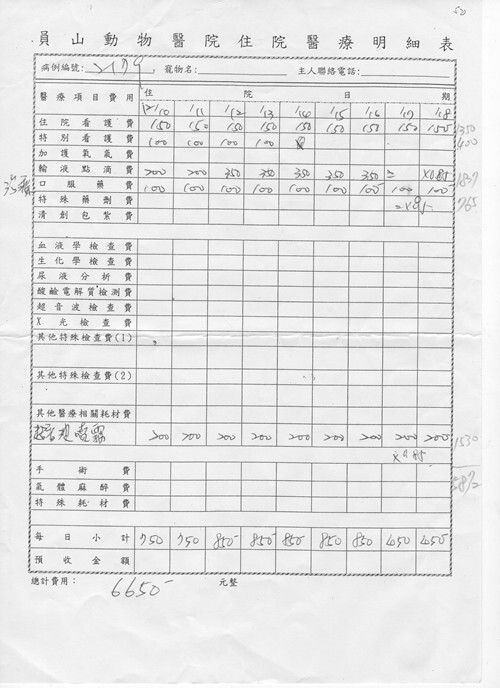 50
員山動物醫院住院醫療明細表
病例編號: 寵物名: 主人聯絡電話:
醫療項目費用 住院日期
12/10 11 12 13 14 15 16 17 18
住院看護費 150 150 150 150 150 150 150 150 150 1350
特別看護費 100 100 100 100 400
加護氧氣費
輸液點滴費 200 200 350 350 350 350 350 = ×0.85
口服藥費 100 100 100 100 100 100 100 100 100 765
特殊藥劑費
清創包紮費
血液學檢查費
生化學檢查費
尿液分析費
酸鹼電解質檢測費
超音波檢查費
X光檢查費
其他特殊檢查費(1)
其他特殊檢查費(2)
其他醫療相關耗材費
噴霧 200 200 200 200 200 200 200 200 200 1530
手術費
氣體麻醉費
特殊耗材費
每日小計 750 750 850 850 850 850 850 450 450
預收金額
總計費用: 6650 元整